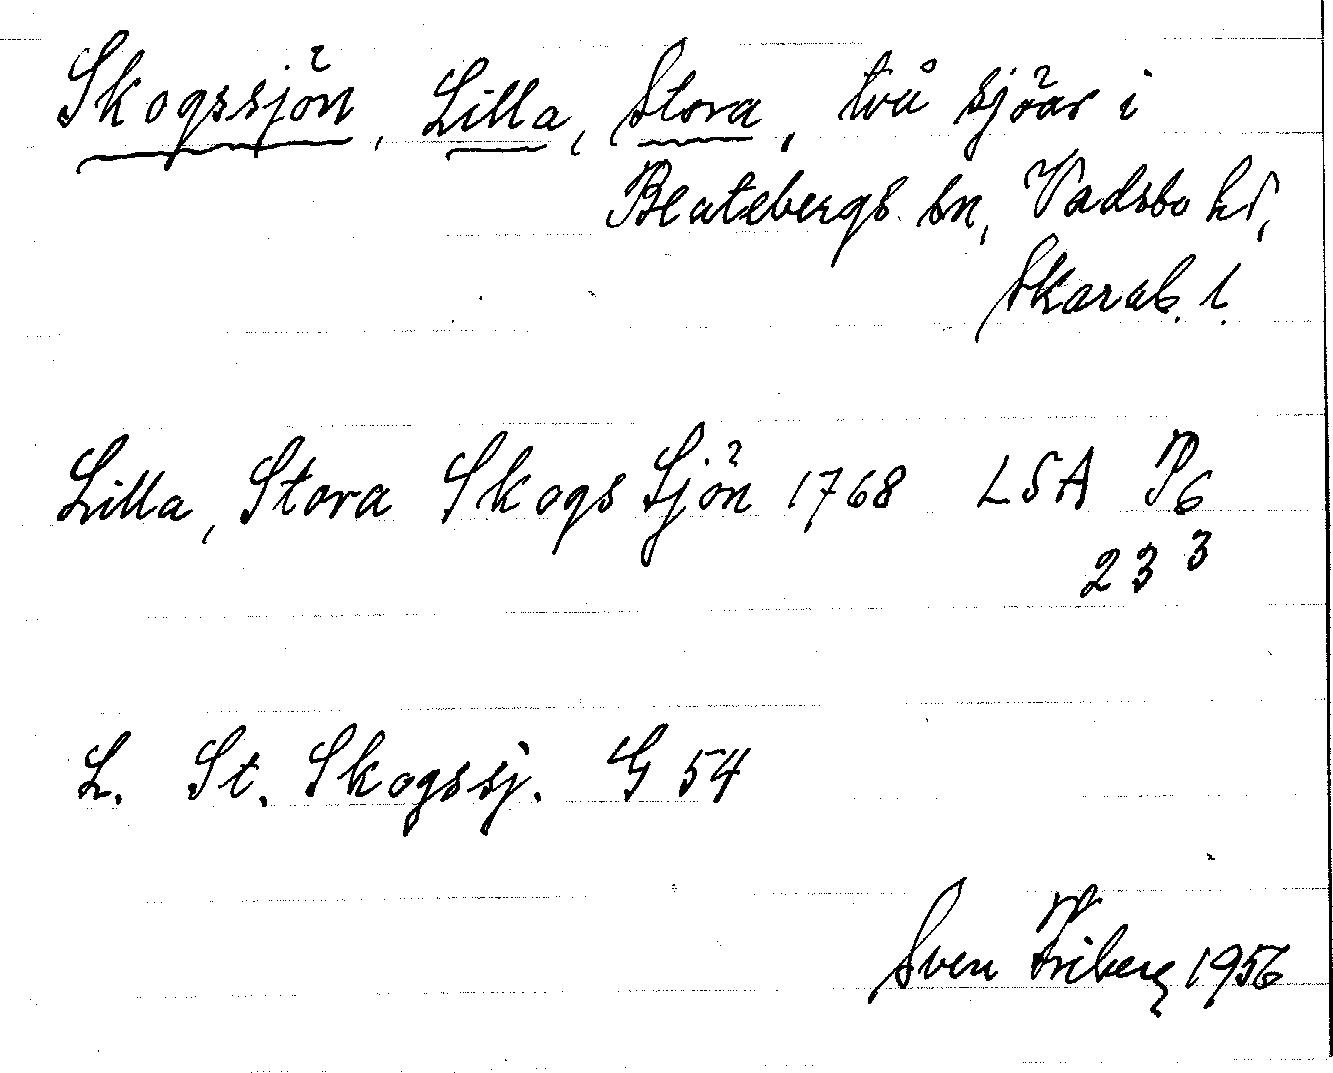 Skogssjön, Lilla, Stora, två sjöar i
Beatebergs sn, Vadsbo hd,
Skarab. l.
Lilla, Stora Skogs Sjön 1768 LSA P6
23 3
L. St. Skogssj. G 54
Sven Friberg 1956